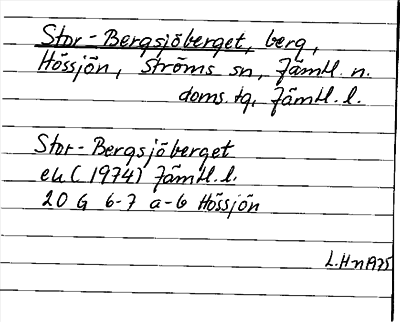 Stor-Bergsjöberget, berg,
Hössjön, Ströms sn, Jämtl. n.
doms. tg, Jämtl. l.
Stor-Bergsjöberget
ek (1974) Jämtl. l.
20 G 6-7 a-b Hössjön
L.Hn 1975